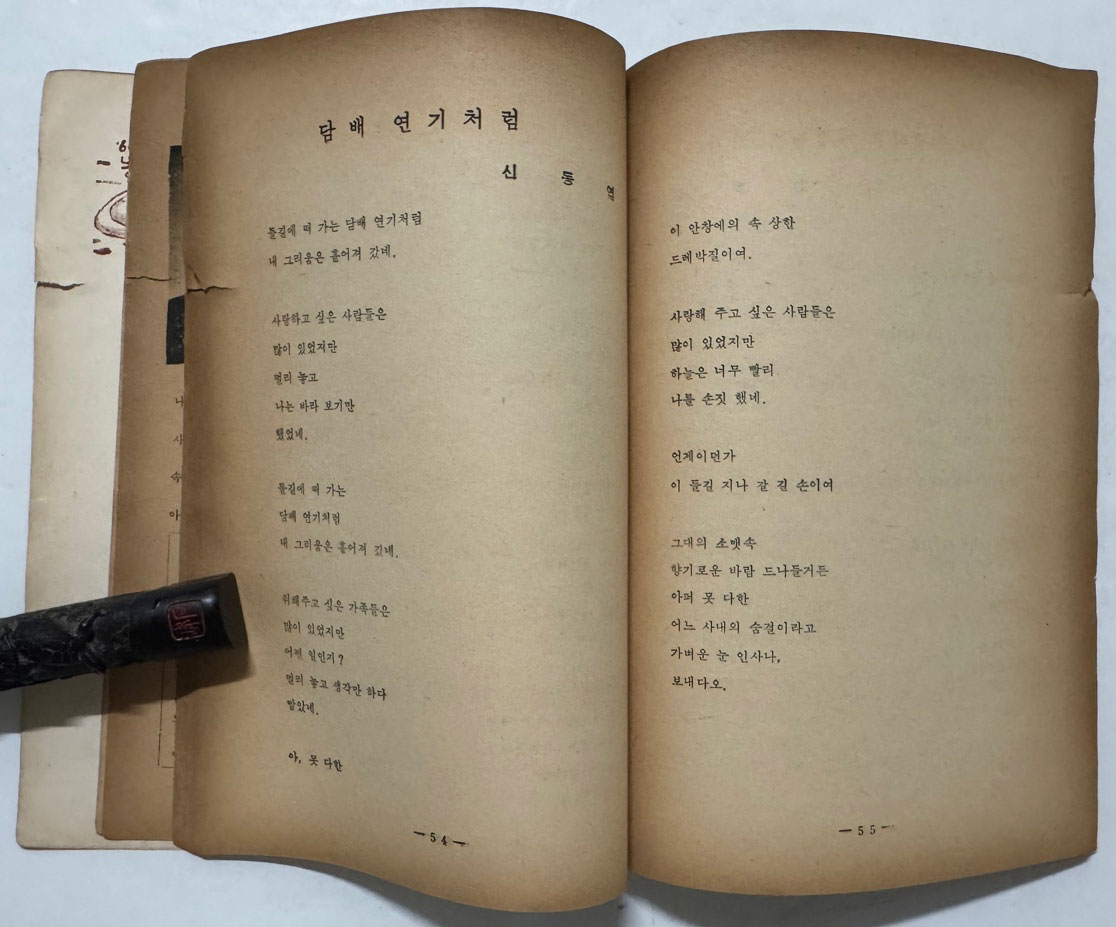 담배 연기처럼
신 동 엽
들길에 떠 가는 담배 연기처럼
내 그리움은 흩어져 갔네.
사랑하고 싶은 사람들은
많이 있었지만
멀리 놓고
나는 바라 보기만
했었네.
들길에 떠 가는
담배 연기처럼
내 그리움은 흩어져 갔네.
위해주고 싶은 가족들은
많이 있었지만
어쩐 일인지?
멀리 놓고 생각만 하다
말았네.
아, 못 다한
—54—
이 안창에의 속 상한
드레박질이여.
사랑해 주고 싶은 사람들은
많이 있었지만
하늘은 너무 빨리
나를 손짓 했네.
언제이던가
이 들길 지나 갈 길 손이여
그대의 소맷속
향기로운 바람 드나들거든
아퍼 못 다한
어느 사내의 숨결이라고
가벼운 눈 인사나,
보내다오.
—55—
나
사
속
아